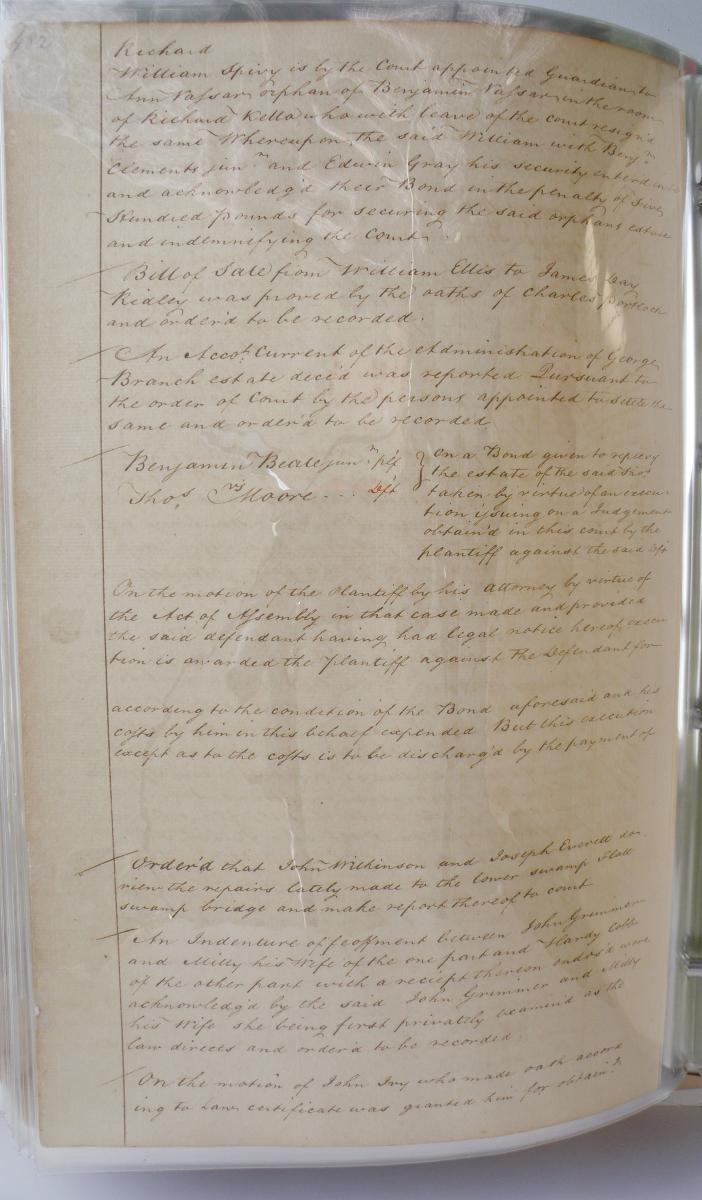 Richard
William Spivy is by the Court appointed Guardian to
Ann Vassar orphan of Benjamin Vassar in the room
of Richard Kello who with leave of the court resign'd
the same Whereupon the said William with Benjn
Clements junr and Edwin Gray his security enterd into
and acknowledg'd their Bond in the penalty of five
Hundred pounds for securing the said orphans estate
and indemnifying the Court.
Bill of Sale from William Ellis to James Day
Ridley was proved by the oaths of Charles Portlock
and order'd to be recorded.
An Accot. Current of the Administration of George
Branch estate deced was reported Pursuant to
the order of Court by the persons appointed to settle the
same and order'd to be recorded
Benjamin Beale junr. plf
vs
Thos. Moore - - - Deft
on a Bond given to repievy
the estate of the said Thos.
taken by virtue of an execu-
tion issuing on a Judgement
obtain'd in this court by the
plantiff against the said deft
On the motion of the Plantiff by his attorney by virtue of
the Act of Assembly in that case made and provided
the said defendant having had legal notice hereof, execu
tion is awarded the plantiff against the Defendant for
according to the condition of the Bond aforesaid and his
costs by him in this behalf expended But this execution
except as to the costs is to be discharg'd by the payment of
Order'd that John Wilkinson and Joseph Everett do
view the repairs lately made to the lower swamp Flatt
swamp bridge and make report thereof to court
An Indenture of feoffment between John Grimmer
and Milly his Wife of the one part and Hardy Cobb
of the other part with a reciept thereon endors'd were
acknowledg'd by the said John Grimmer and Milly
his Wife she being first privately examin'd as the
law directs and order'd to be recorded.
On the motion of John Ivy who made oath accord
ing to Law certificate was granted him for obtaing